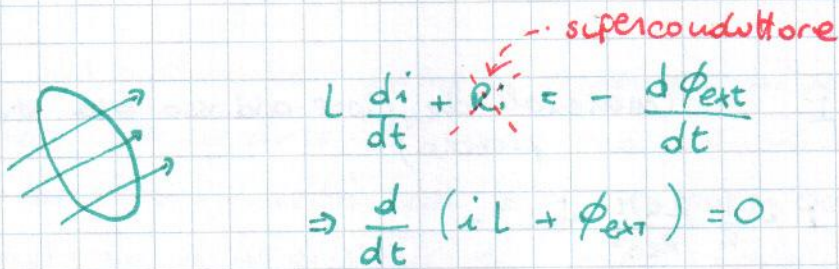 superconduttore
L di/dt + Ri = - dϕext/dt
⇒ d/dt (iL + ϕext) = 0